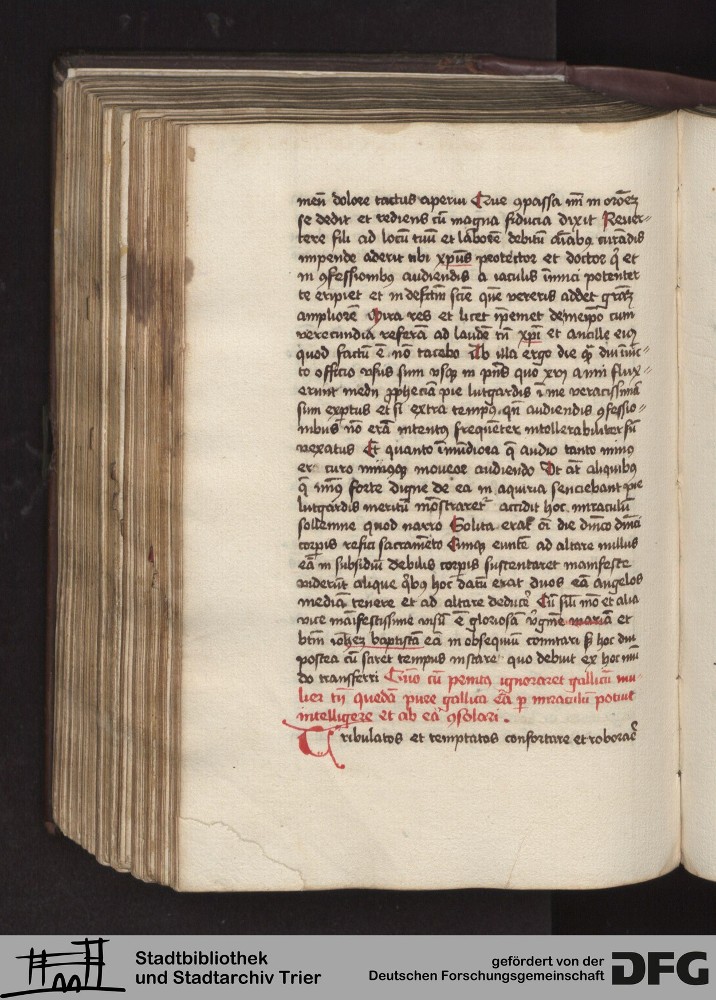 meū dolore tactus aperui Que ꝯpassa m̄ in orōeꝫ
se dedit et rediens cū magna fiducia dixit Reuer⸗
tere fili ad locū tuū et laborē debitū aīabꝯ curādis
impende aderit tibi xpūs protector et doctor qͥ et
in ꝯfessionibꝯ audiendis a iaculis inīici potenter
te eripiet et in defectū sciē quē vereris addet grāꝫ
ampliorē Mira res et licet ip̄emet de meip̄o cum
verecundia referā ad laudē tn̄ xpī et ancille eiꝯ
quod factū ē nō tacebo Ab illa ergo die qͣ diuīnc⸗
to officio vsus sum vsqꝫ in p̄ns quo xvj anni flux⸗
erunt medij ꝓpheciā pie lutgardis ī me veracissimā
sum exꝑtus et si extra tempꝯ qn̄ audiendis ꝯfessio⸗
nibus nō erā intentꝯ frequēter intollerabiliter sū
vexatus Et quanto īmūdiora qͥ audio tanto minꝯ
er curo miniꝯqꝫ moueor audiendo Vt at̄ aliquibꝯ
qͥ minꝯ forte digne de ea in aquiria senciebant pie
lutgardis meritū mōstraretᷣ accidit hoc miraculū
sollemne quod narro Solita erat oī die dnīco dnīci
corꝑis refici sacramēto Cūmqꝫ euntē ad altare nullus
eā in subsidiū debilis corꝑis sustentaret manifeste
viderūt alique qͥbꝯ hoc datū erat duos eā angelos
mediā tenere et ad altare deducē Cū sili mō et alia
vice māifestissime visū ē gloriosā v̓gīnē mariā et
btm̄ ioh̄eꝫ baptistā eā in obsequiū comitari sꝫ hoc diu
postea cū staret tempus instare quo debuit ex hoc mū
do transferri Quō cū penitꝯ ignoraret gallicū mu
lier tn̄ quedā pure gallica eā ꝑ miraculū potuit
intelligere et ab ea ꝯsolari .
Tribulatos et temptatos confortare et roborae᷒
Stadtbibliothek
und Stadtarchiv Trier
gefördert von der
Deutschen Forschungsgemeinschaft
DFG